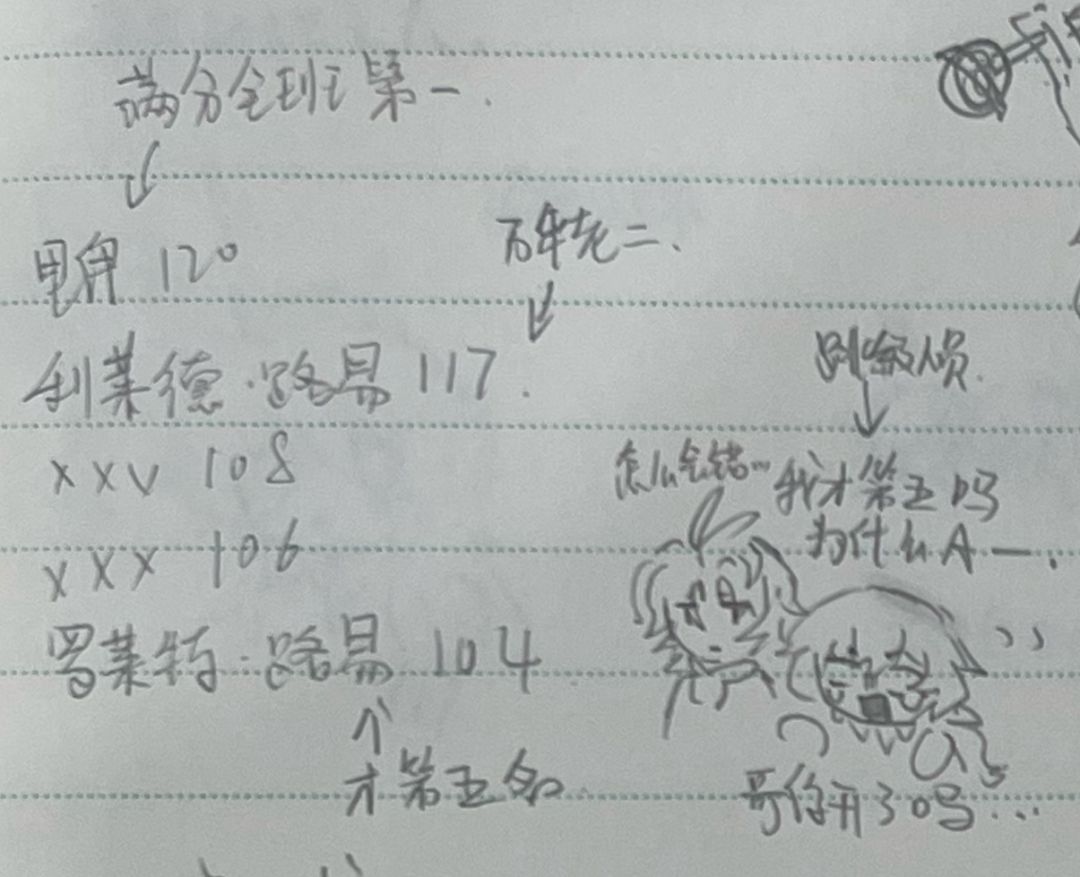 满分全班第一.
万年老二、
120
利莱德·路易 117.
跳级人员.
xxv 108
怎么会错…
我才第五吗
为什么A一.
xxx 106
罗莱特·路易 104
才第五名
哥你开30吗...